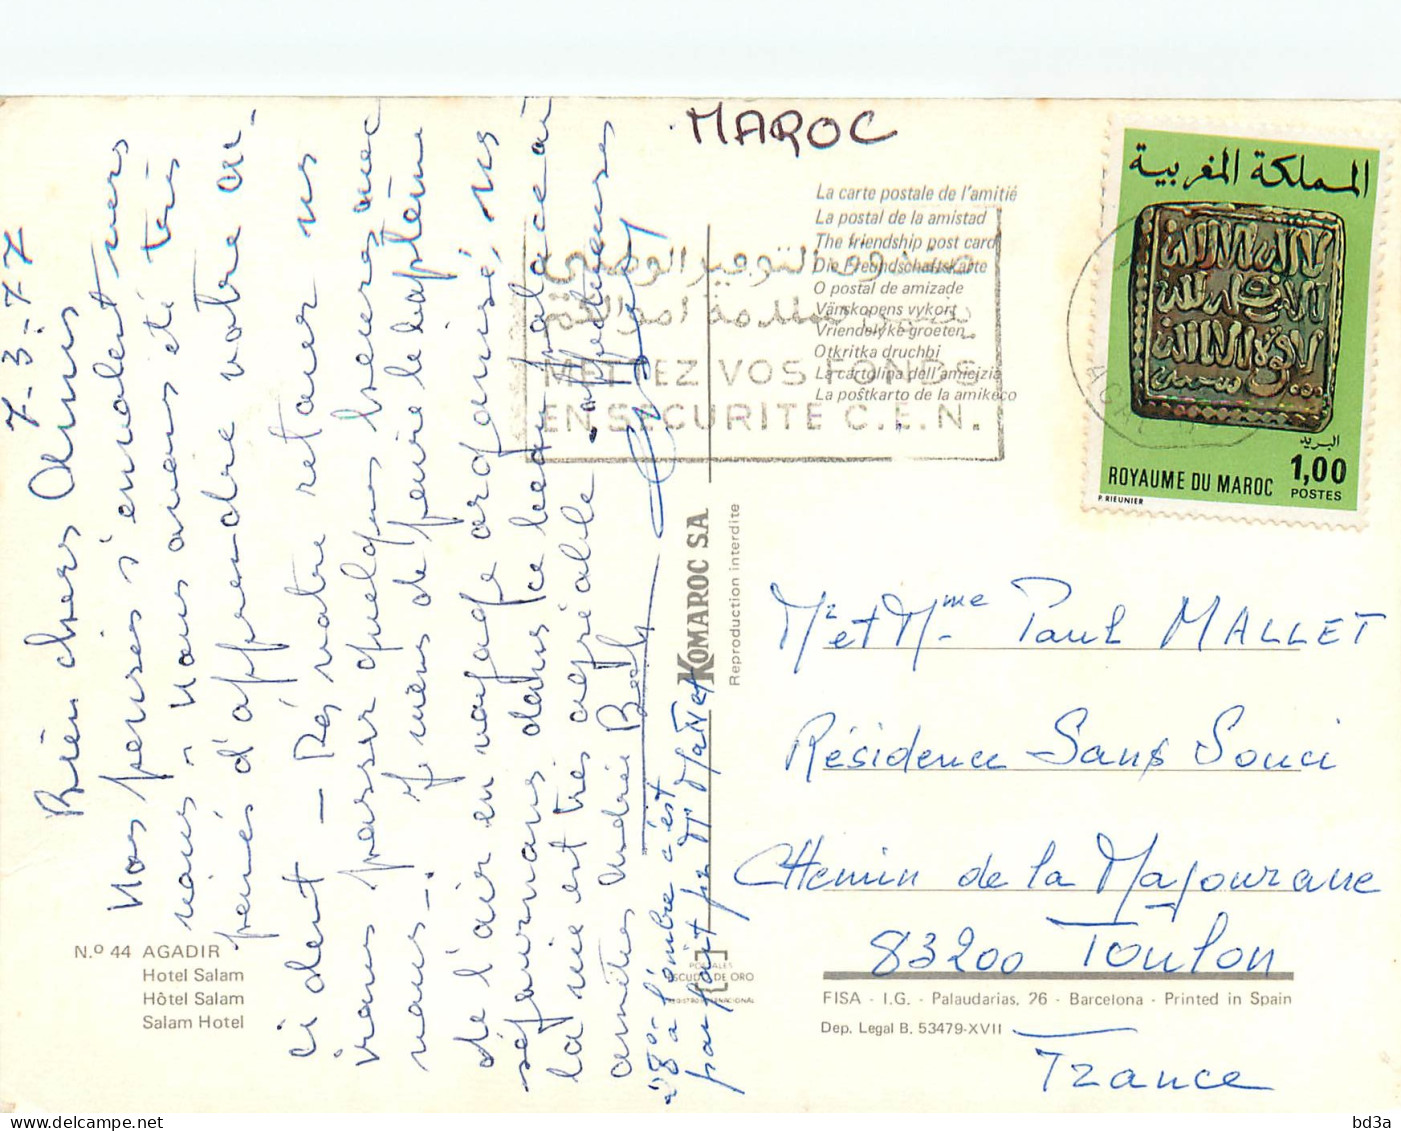 MAROC
7-3-77
Bien chers Amis
Nos pensées s'envolent vers
vous - nous avons été très
peinés d'apprendre votre ac-
cident - Dès notre retour ns
irons passer quelques heures avec
vous -. Je viens de faire le baptême
de l'air en voyage organisé, ns
séjournons dans ce beau palace où
la vie est très agréable - affectueuses
amitiés
28° à l'ombre c'est
parfait pr Mr
La carte postale de l'amitié
La postal de la amistad
The friendship post card
Die Freundschaftskarte
O postal de amizade
Vänskopens vykort
Vriendelyke groeten
Otkritka druchbi
La cartolina dell'amicizia
La poŝtkarto de la amikeco
صندوق التوفير الوطني
METTEZ VOS FONDS
EN SECURITE C.E.N.
المملكة المغربية
البريد
1,00
POSTES
ROYAUME DU MAROC
P. RIEUNIER
KOMAROC S.A.
Reproduction interdite
Mr et Mme Paul MALLET
Résidence Sans Souci
Chemin de la Majourane
83200 Toulon
France
N.º 44 AGADIR
Hotel Salam
Hôtel Salam
Salam Hotel
POSTALES
ESCUDO DE ORO
FISA - I.G. - Palaudarias, 26 - Barcelona - Printed in Spain
Dep. Legal B. 53479-XVII
bd3a